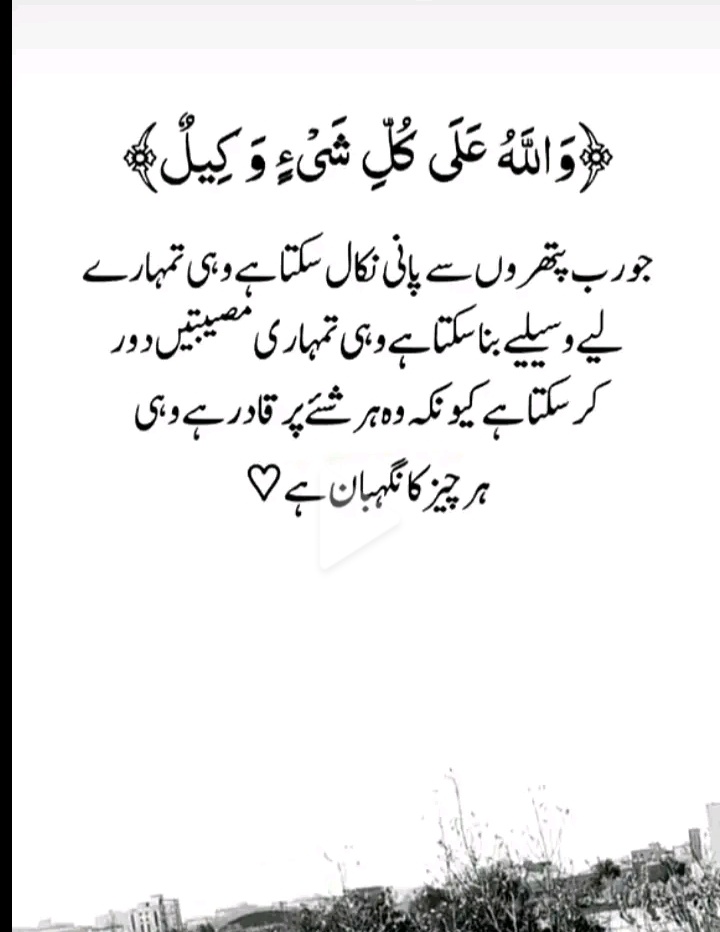 ﴿وَاللَّهُ عَلَى كُلِّ شَىْءٍ وَكِيلٌ﴾
جو رب پتھروں سے پانی نکال سکتا ہے وہی تمہارے
لیے وسیلیے بنا سکتا ہے وہی تمہاری مصیبتیں دور
کر سکتا ہے کیونکہ وہ ہر شئے پر قادر ہے وہی
ہر چیز کا نگہبان ہے ♡